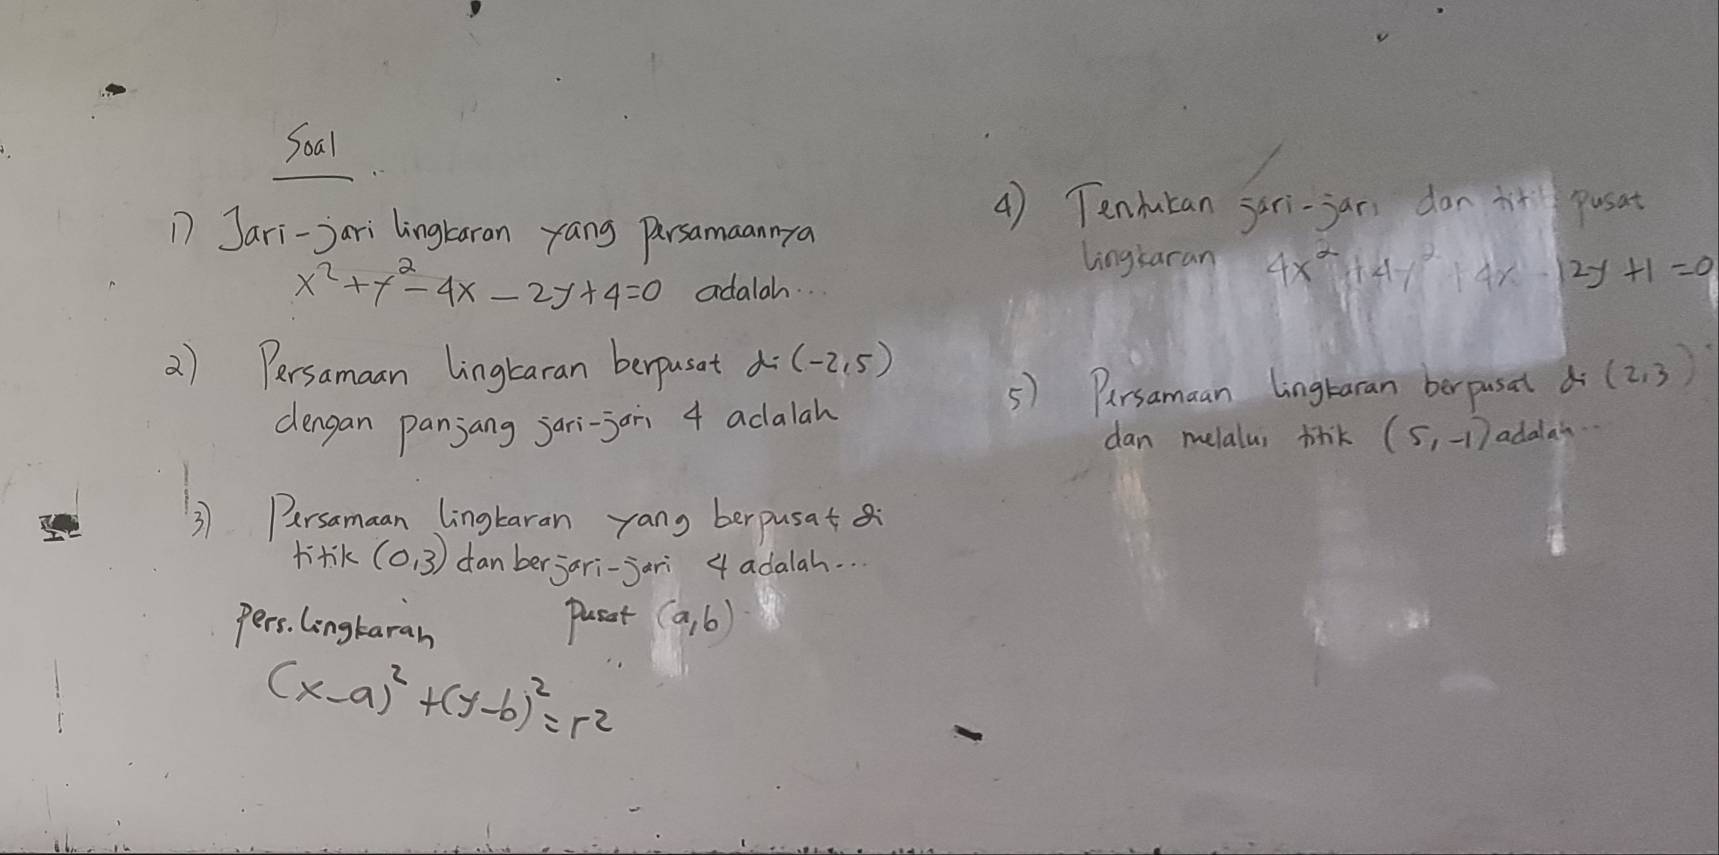 Soal
1) Jari-jari lingkaran yang persamaannya
x² + y² - 4x - 2y + 4 = 0 adalah...
2) Persamaan lingkaran berpusat di (-2,5)
dengan panjang jari-jari 4 adalah
3) Persamaan lingkaran yang berpusat di
titik (0,3) dan berjari-jari 4 adalah...
Pers. lingkaran Pusat (a,b)
(x-a)² + (y-b)² = r²
4) Tentukan jari-jari dan titik pusat
lingkaran 4x² + 4y² + 4x - 12y + 1 = 0
5) Persamaan lingkaran berpusat di (2,3)
dan melalui titik (5,-1) adalah...